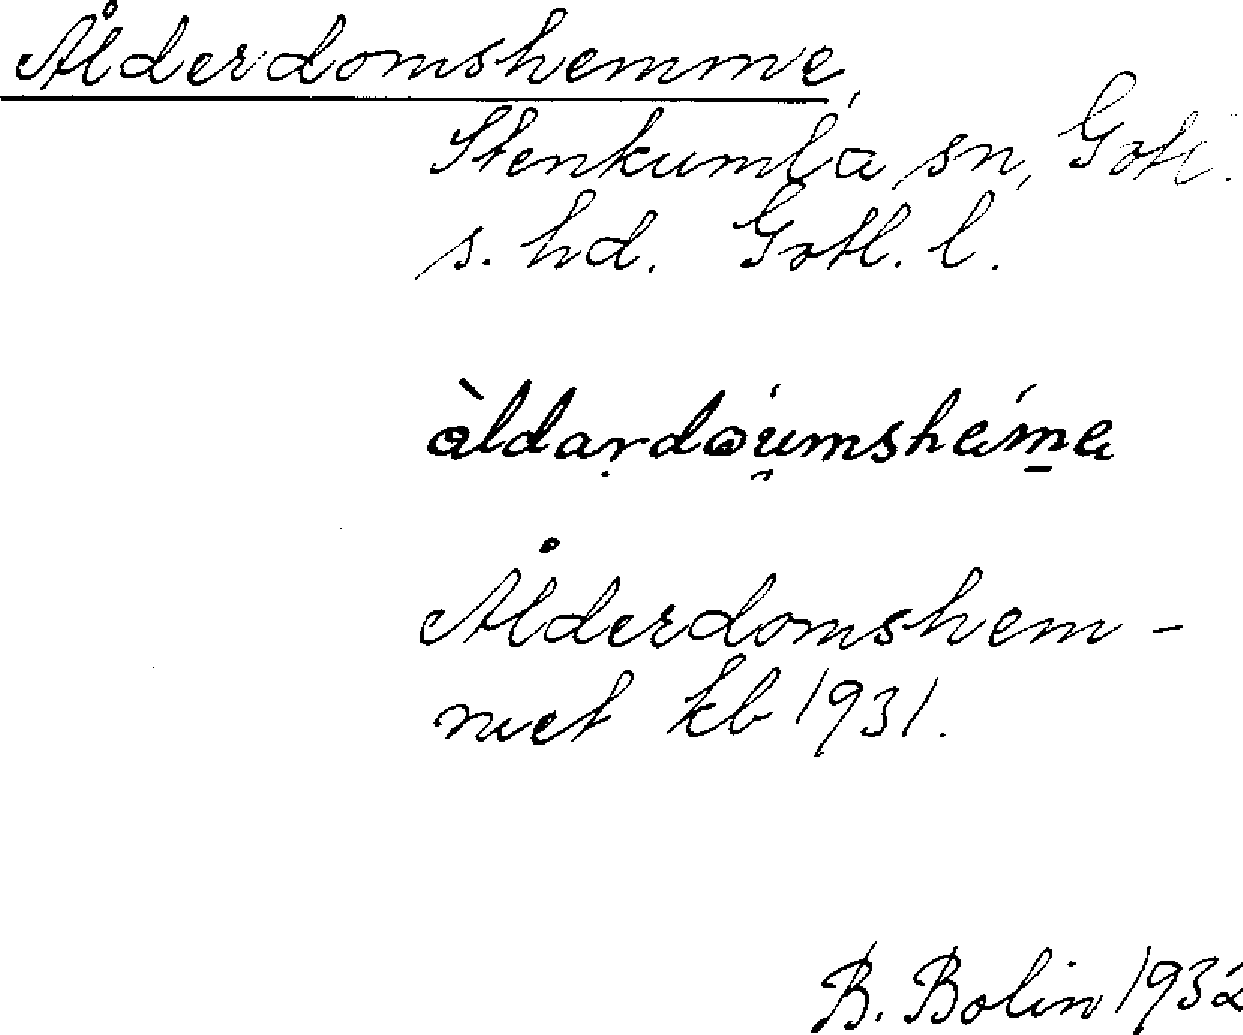 Ålderdomshemme,
Stenkumla sn, Gotl.
s. hd. Gotl. l.
àldaṛdóu̯mshém̱a
Ålderdomshem-
met kb 1931.
B. Bolin 1932